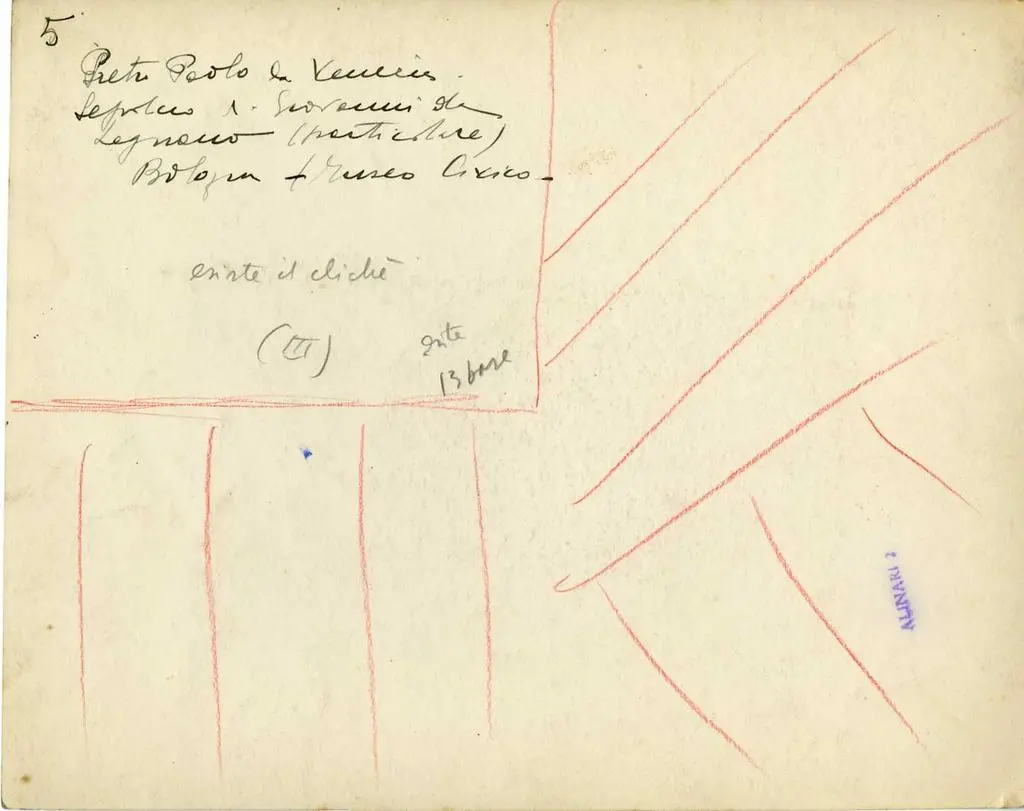 5
Pietro Paolo da Venezia.
Sepolcro di Giovanni da
Legnano (particolare)
Bologna - Museo Civico -
esiste il cliché
(III)
13 base
ALINARI ?